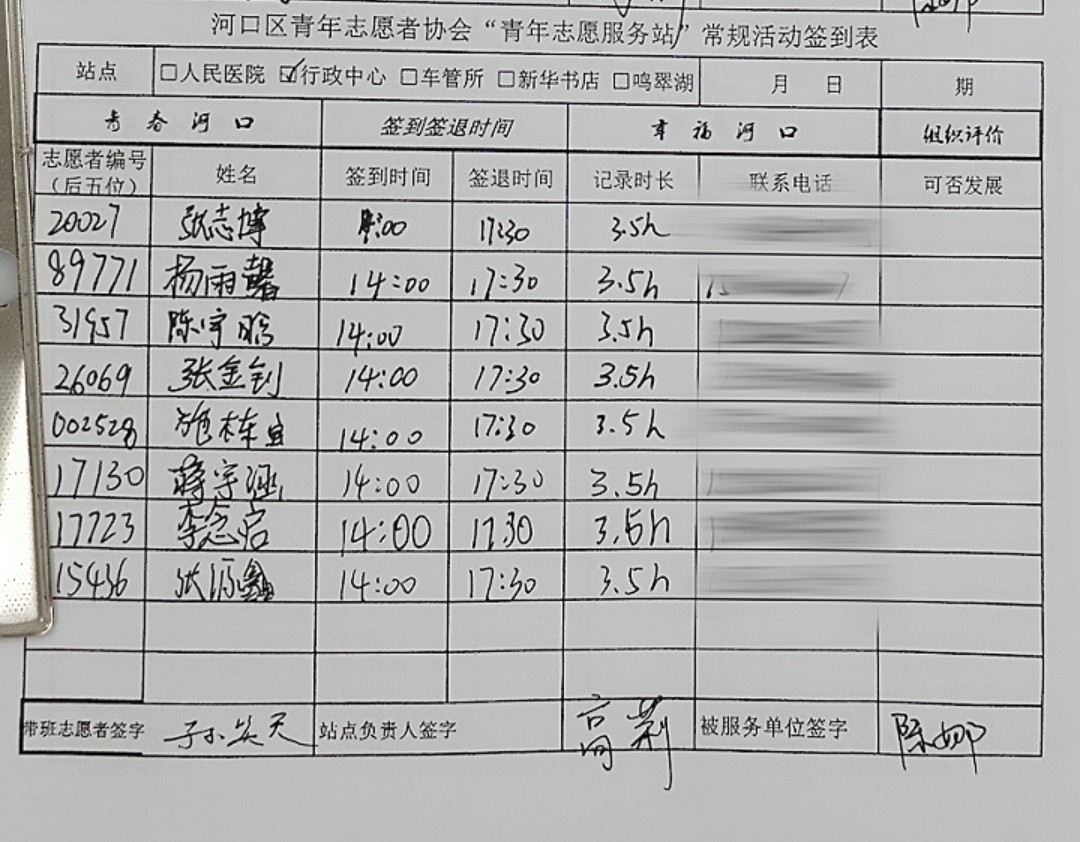 河口区青年志愿者协会“青年志愿服务站”常规活动签到表
站点 □人民医院 ☑行政中心 □车管所 □新华书店 □鸣翠湖 月 日 期
青春河口 签到签退时间 幸福河口 组织评价
志愿者编号（后五位） 姓名 签到时间 签退时间 记录时长 联系电话 可否发展
20027 张志博 17:30 3.5h
89771 杨雨馨 14:00 17:30 3.5h
31957 陈宇晗 14:00 17:30 3.5h
26069 张金钊 14:00 17:30 3.5h
002528 14:00 17:30 3.5h
17130 蒋宇涵 14:00 17:30 3.5h
17723 李念启 14:00 17:30 3.5h
15436 张源鑫 14:00 17:30 3.5h
带班志愿者签字 孙笑天 站点负责人签字 高莉 被服务单位签字 陈娜